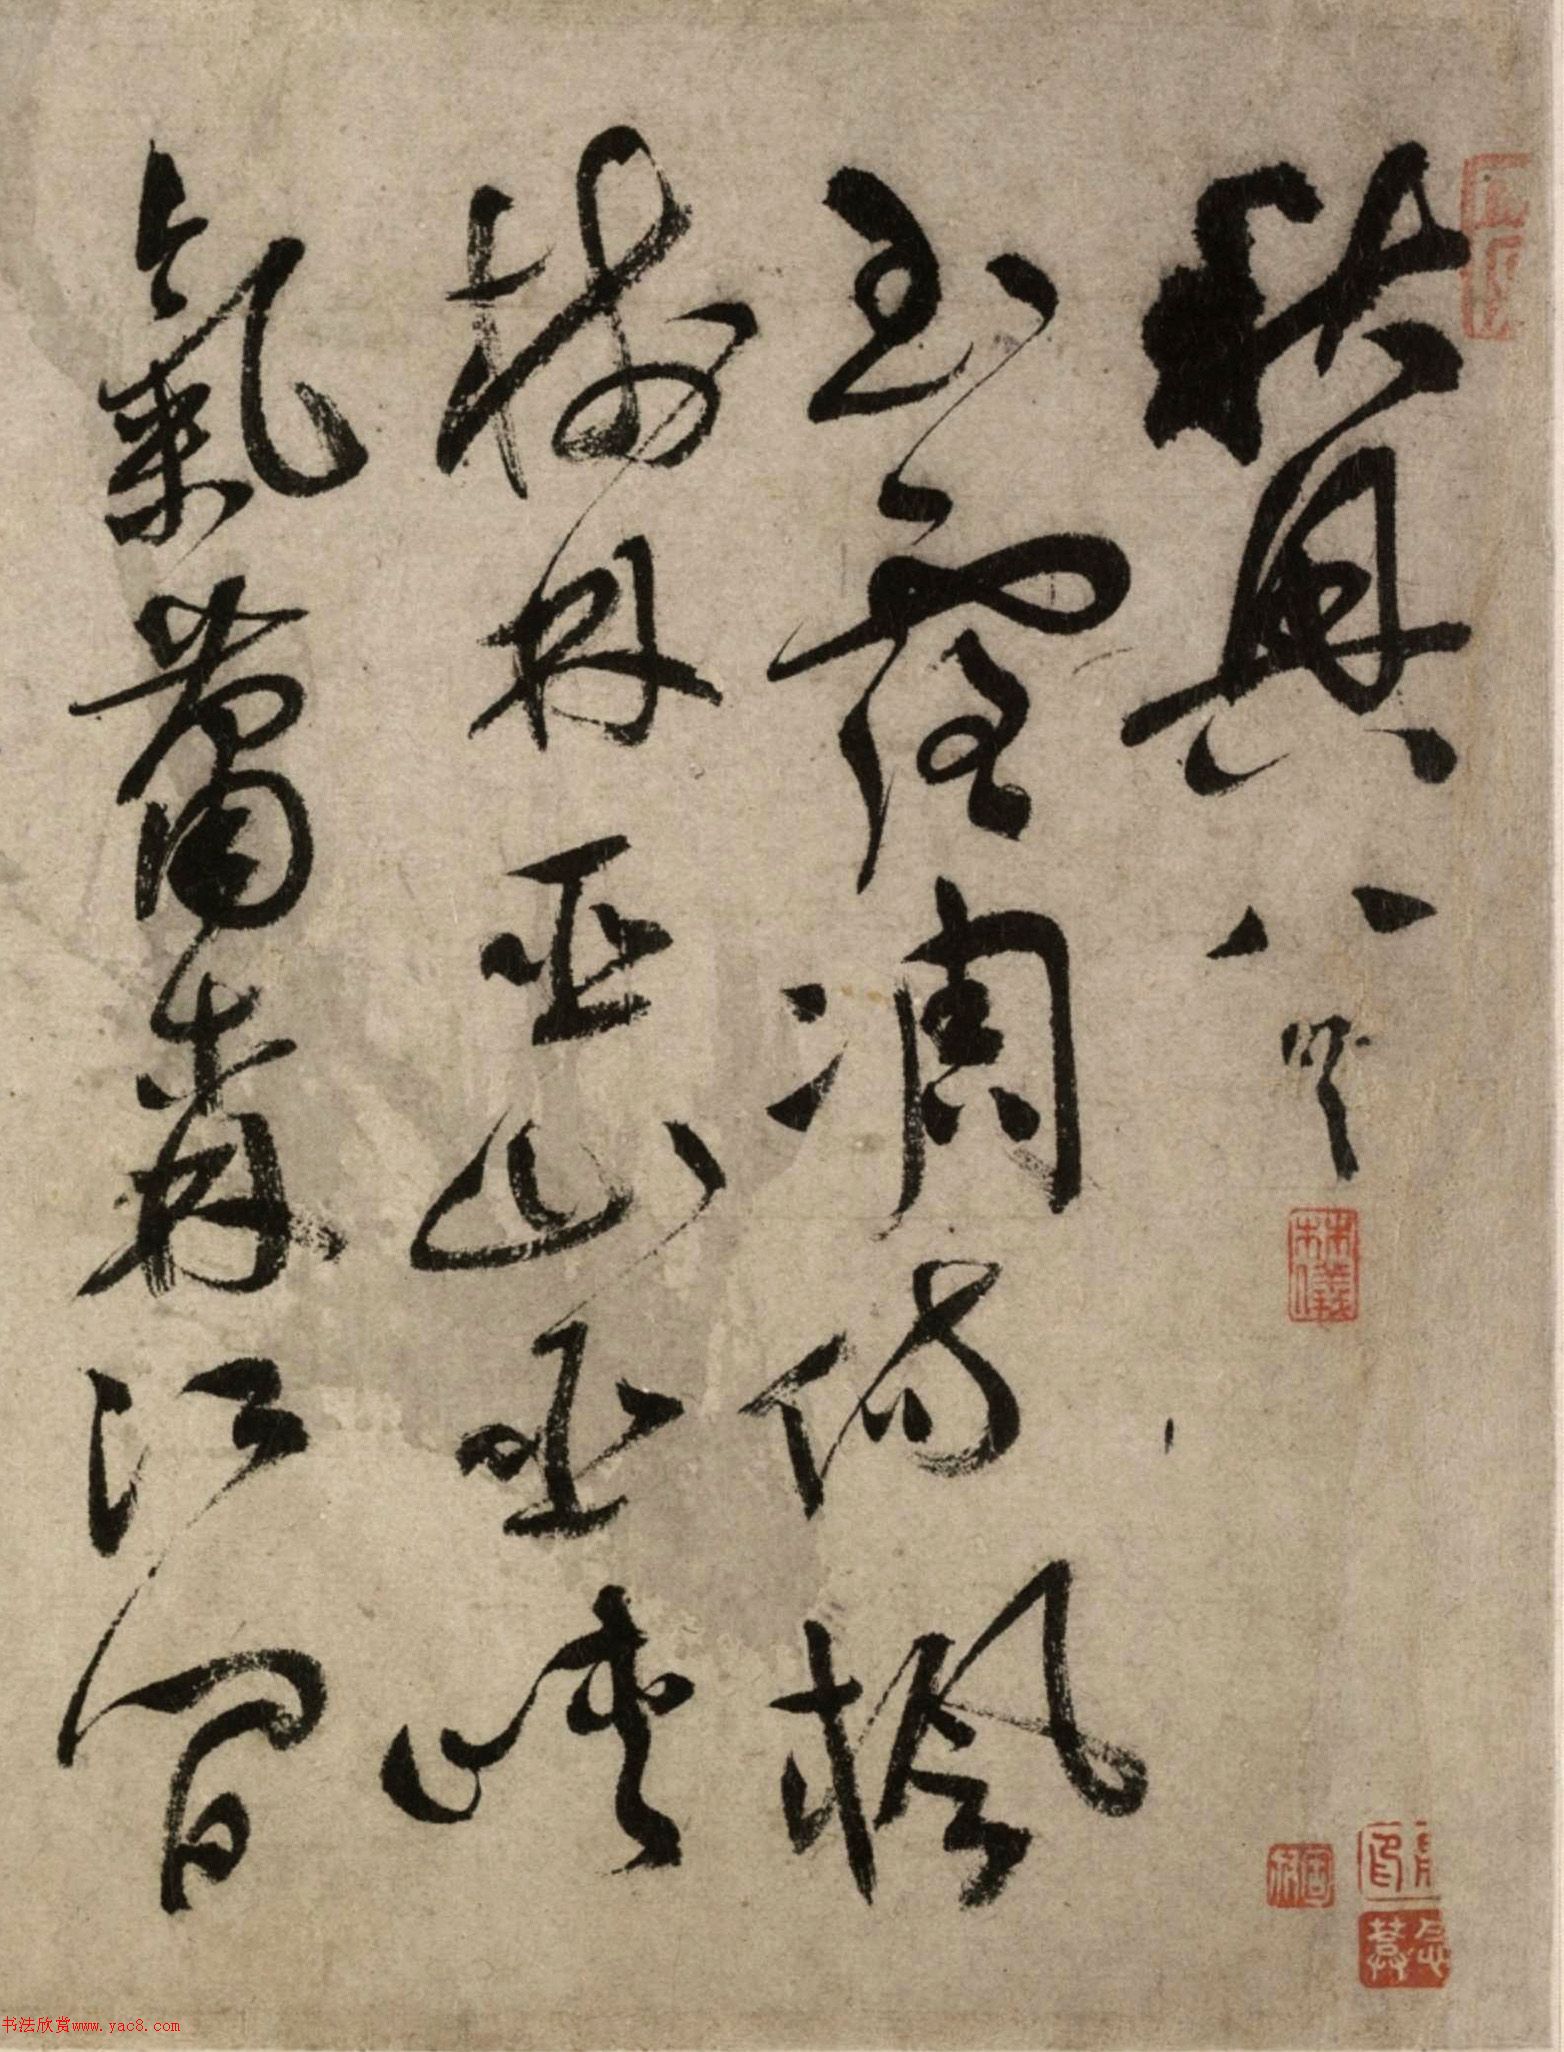 秋興八首
玉露凋傷楓
樹林巫山巫峽
氣蕭森江間
书法欣赏www.yac8.com